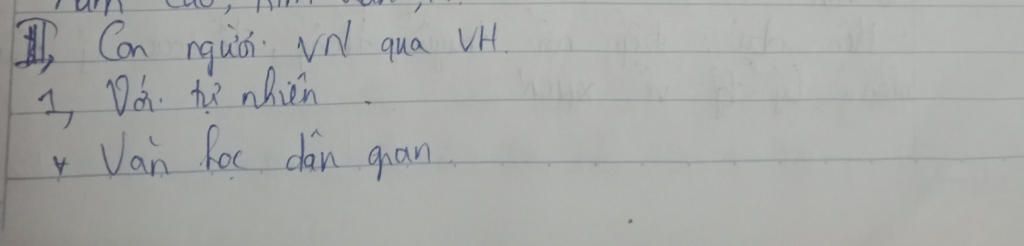 II, Con người VN qua VH.
1, Với tự nhiên.
* Văn học dân gian